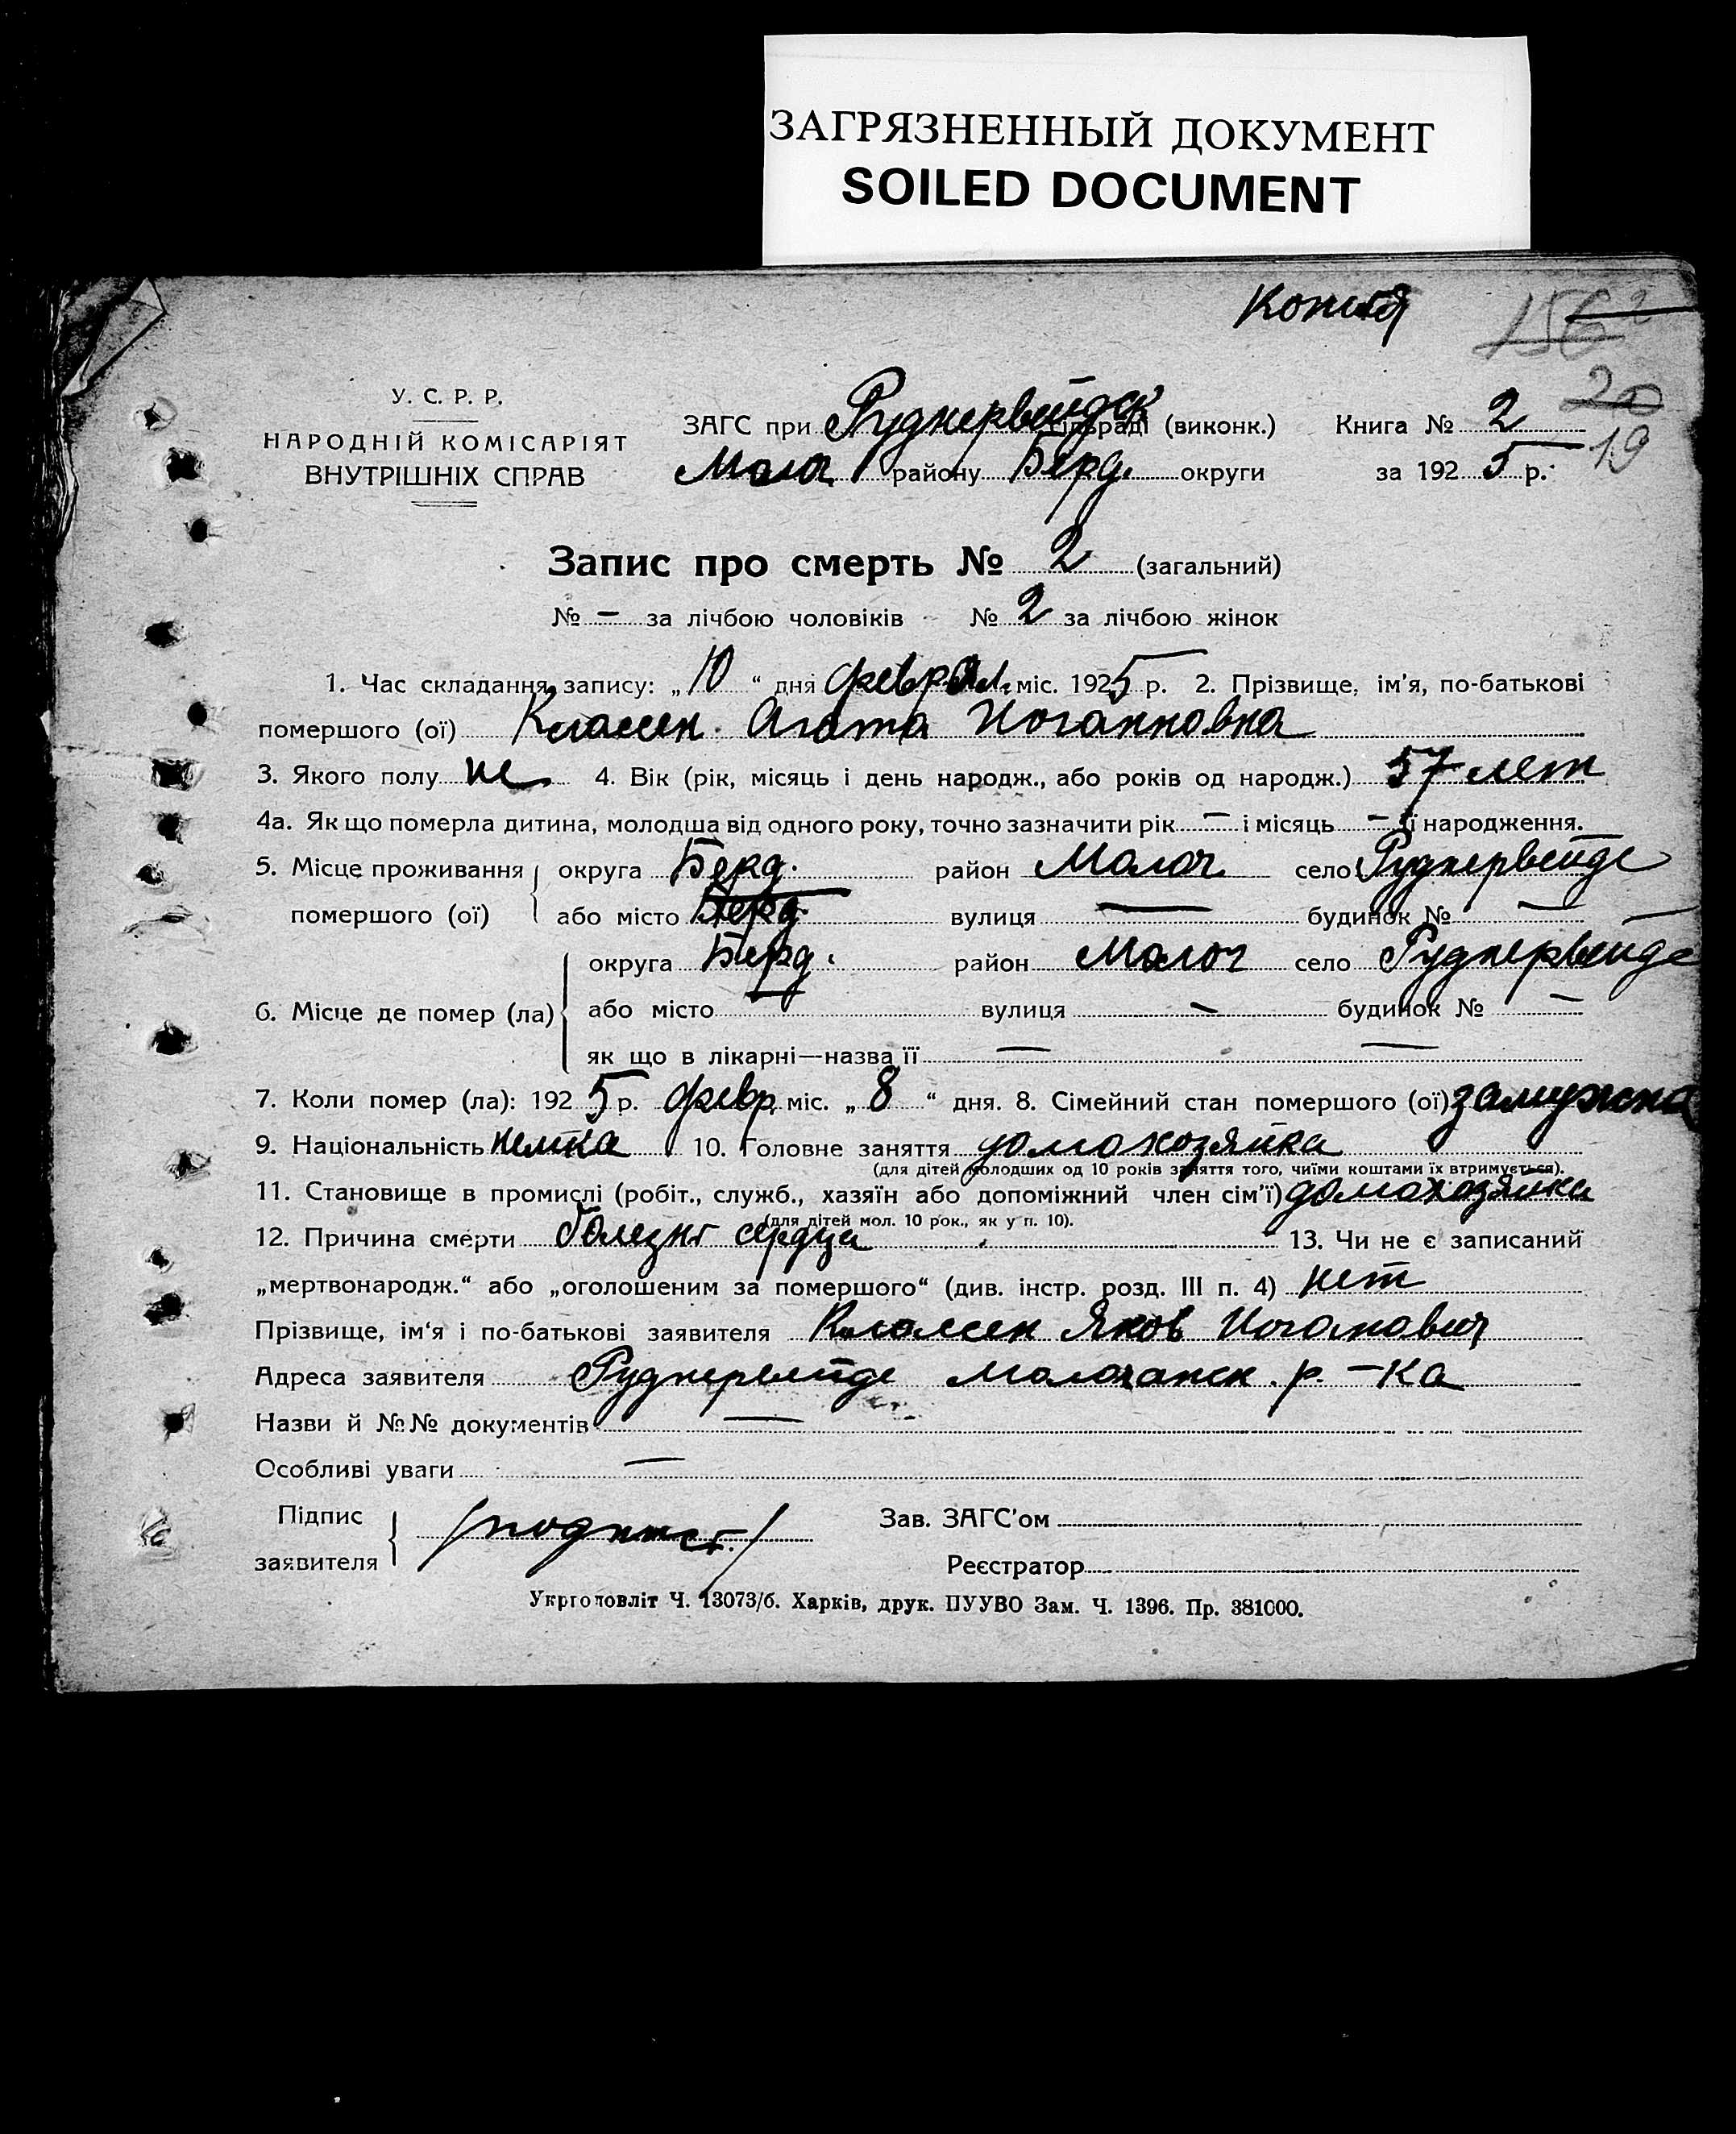 ЗАГРЯЗНЕННЫЙ ДОКУМЕНТ
SOILED DOCUMENT
Копия
156 2
20
19
У. С. Р. Р.
НАРОДНІЙ КОМІСАРІЯТ
ВНУТРІШНІХ СПРАВ
ЗАГС при Руднервейдск сільраді (виконк.) Книга № 2
Молоч району Берд. округи за 1925 р.
Запис про смерть № 2 (загальний)
№ – за лічбою чоловіків № 2 за лічбою жінок
1. Час складання запису: „10“ дня феврал. міс. 1925 р. 2. Прізвище, ім'я, по-батькові
помершого (ої) Классен Агата Иоганновна
3. Якого полу же. 4. Вік (рік, місяць і день народж., або років од народж.) 57 лет
4а. Як що померла дитина, молодша від одного року, точно зазначити рік – і місяць – її народження.
5. Місце проживання округа Берд. район Молоч село Руднервейде
помершого (ої) або місто Берд. вулиця — будинок № —
округа Берд. район Молоч село Руднервейде
6. Місце де помер (ла) або місто — вулиця — будинок № —
як що в лікарні—назва її — —
7. Коли помер (ла): 1925 р. февр міс. „8“ дня. 8. Сімейний стан помершого (ої) замужна
9. Національність немка 10. Головне заняття домохозяйка
(для дітей молодших од 10 років заняття того, чиїми коштами їх втримується).
11. Становище в промислі (робіт., служб., хазяїн або допоміжний член сім'ї) домохозяйка
(для дітей мол. 10 рок., як у п. 10).
12. Причина смерти болезнь сердца 13. Чи не є записаний
„мертвонародж.“ або „оголошеним за помершого“ (див. інстр. розд. III п. 4) нет
Прізвище, ім‘я і по-батькові заявителя Классен Яков Иоганович
Адреса заявителя Руднервейде Молочанск. р.-ка
Назви й №№ документів —
Особливі уваги —
Підпис
заявителя /подпись/
Зав. ЗАГС'ом
Реєстратор
Укрголовліт Ч. 13073/б. Харків, друк. ПУУВО Зам. Ч. 1396. Пр. 381000.